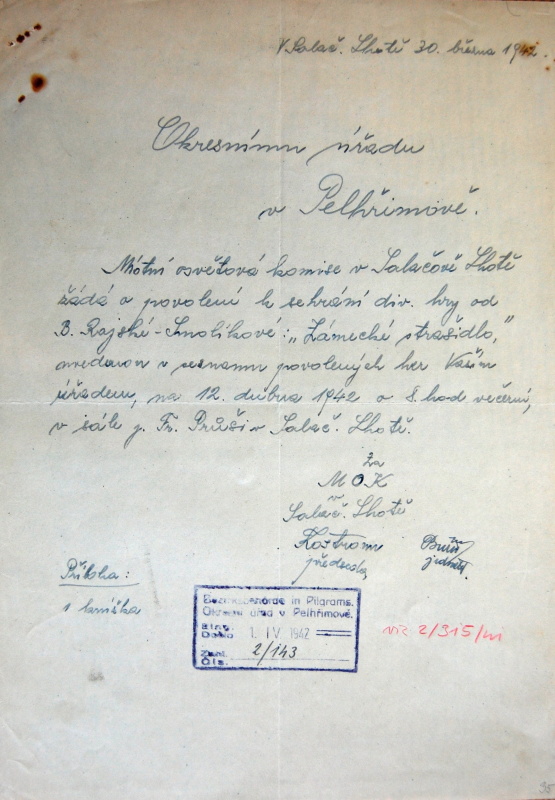 V Salač. Lhotě 30. března 1942.
Okresnímu úřadu
v Pelhřimově.
Místní osvětová komise v Salačově Lhotě
žádá o povolení k sehrání div. hry od
B. Rajské-Smolíkové: „Zámecké strašidlo,"
uvedenou v seznamu povolených her Vaším
úřadem, na 12. dubna 1942 o 8. hod večerní,
v sále p. Fr. Průši v Salač. Lhotě.
Za
M O K
v
Salač. Lhotě
předseda
jednatel
Příloha:
1 knížka
Bezirksbehörde in Pilgrams.
Okresní úřad v Pelhřimově.
Eing.
Došlo 1. IV. 1942
Zahl
Čís. 2/143
viz 2/315/VI
35